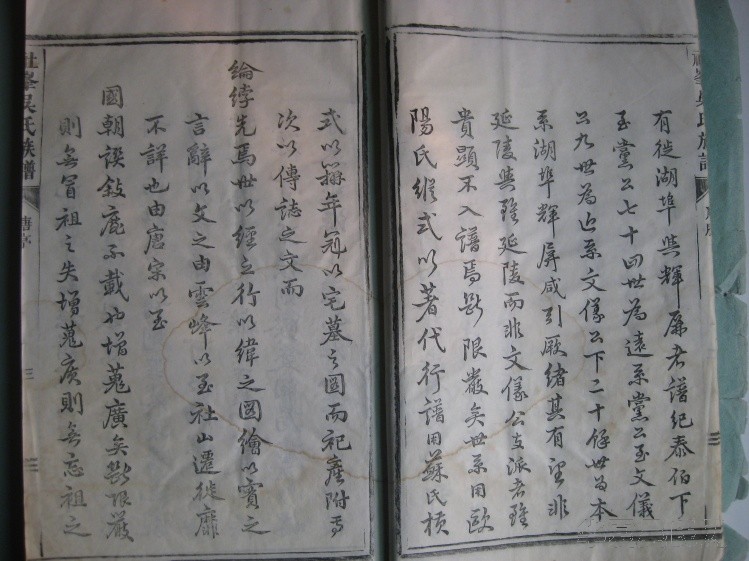 有徙湖埠與輝屏者譜紀泰伯下
至黨公七十四世為遠系黨公至文儀
公九世為近系文儀公下二十餘世為本
系湖埠輝屏咸引厥緒其有望非
延陵與雖延陵而非文儀公支派者雖
貴顯不入譜焉斷限嚴矣世系用歐
陽氏縱式以著代行譜用蘇氏橫
式以繫年冠以宅墓之圖而祀產附焉
次以傳誌之文而
綸綍先焉世以經之行以緯之圖繪以實之
言辭以文之由雲峰以至社山遷徙靡
不詳也由唐宋以至
國朝誤敘鹿不載也增蒐廣矣斷限嚴
則無冒祖之失增蒐廣則無忘祖之
社峯吳氏族譜
唐序
三